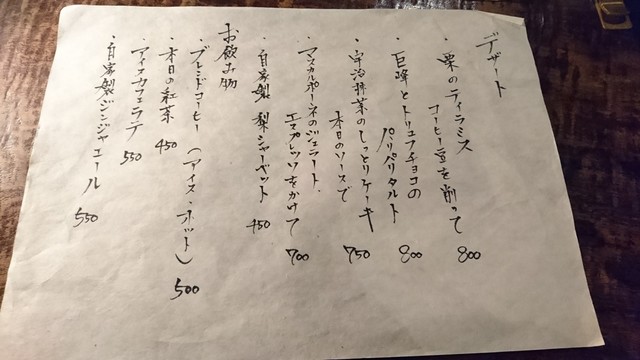 デザート
・栗のティラミス
コーヒー豆を削って 800
・巨峰とトリュフチョコの
パリパリタルト 800
・宇治抹茶のしっとりケーキ
本日のソースで 750
・マスカルポーネのジェラート
エスプレッソをかけて 700
・自家製 梨シャーベット 450
お飲み物
・ブレンドコーヒー (アイス・ホット) 500
・本日の紅茶 450
・アイスカフェラテ 550
・自家製ジンジャエール 550